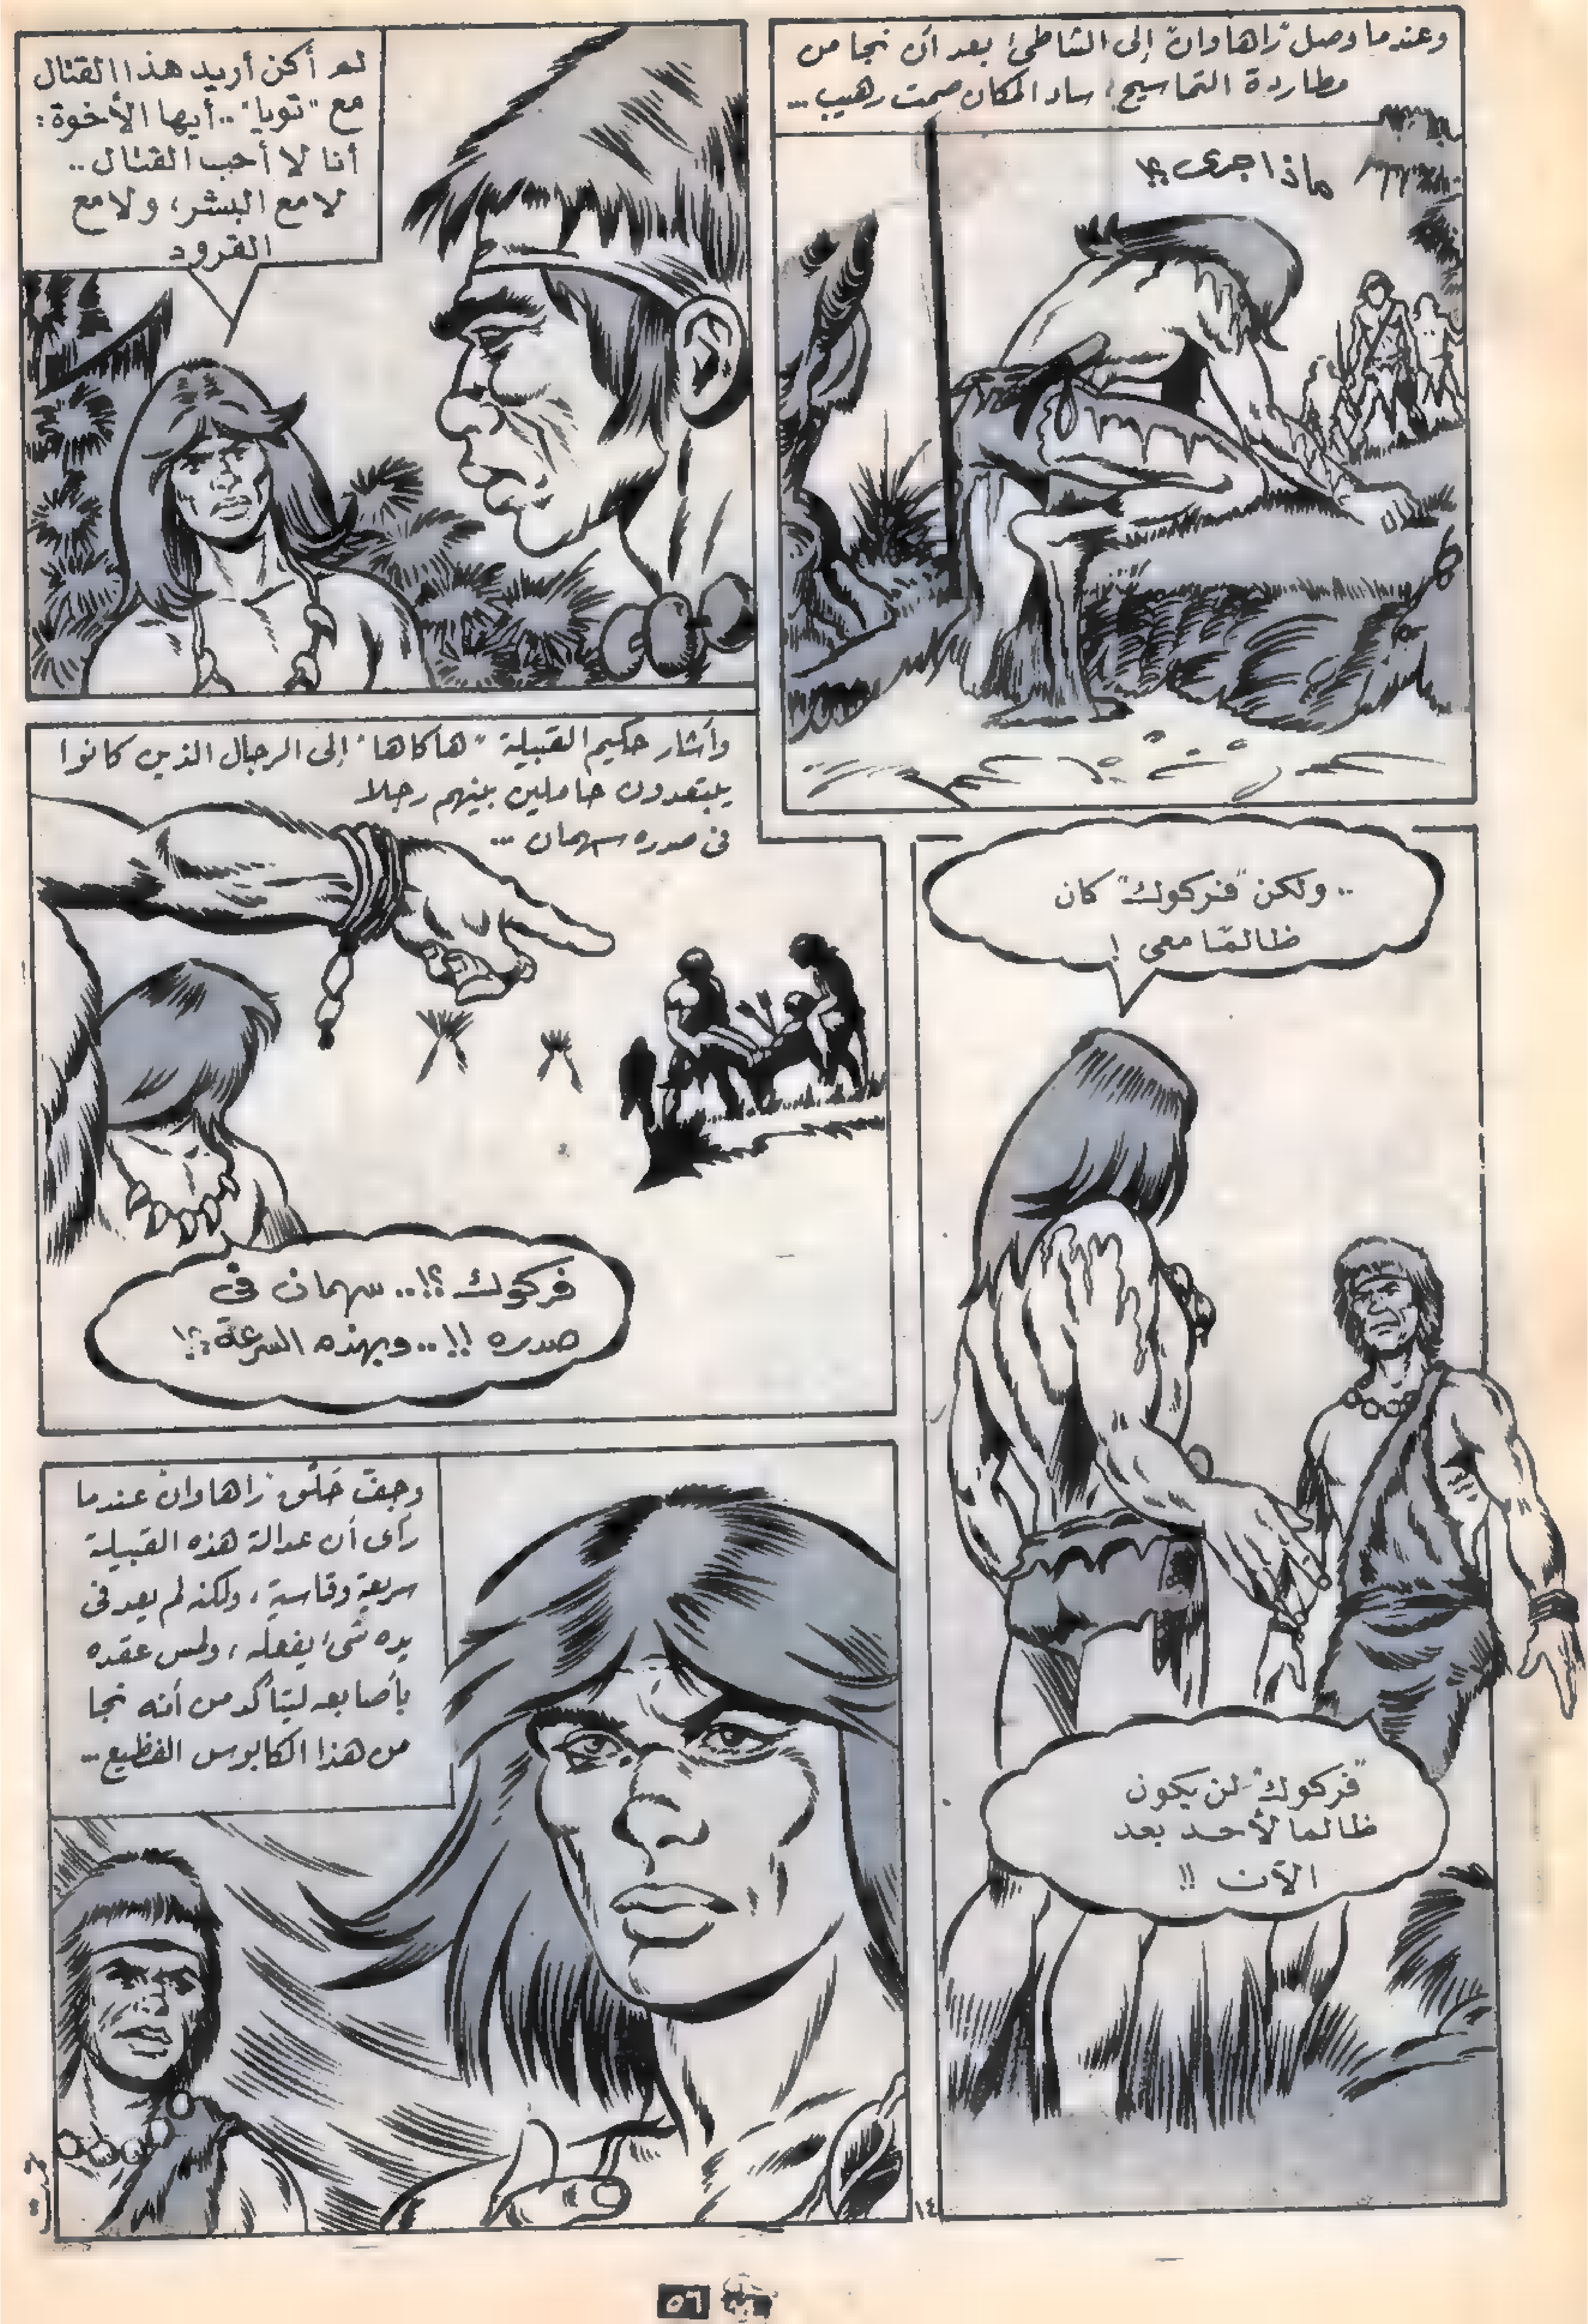 وعندما وصل "زاهاوان" إلى الشاطئ بعد أن نجا من
مطاردة التماسيح، ساد المكان صمت رهيب..
ماذا جرى؟!
لم أكن أريد هذا القتال
مع "توبا"..أيها الأخوة:
أنا لا أحب القتال..
لا مع البشر، ولا مع
القرود
.. ولكن "فركوك" كان
ظالمًا معى !
"فركوك" لن يكون
ظالما لأحد بعد
الآن !!
وأشار حكيم القبيلة "هاكاها" إلى الرجال الذين كانوا
يبتعدون حاملين بينهم رجلا
فى صدره سهمان ...
فركوك ؟!.. سهمان فى
صدره !!..وبهذه السرعة؟!
وجفّ حَلْق "زاهاوان" عندما
رأى أن عدالة هذه القبيلة
سريعة وقاسية، ولكنه لم يعد فى
يده شىء يفعله، ولمس عقده
بأصابعه ليتأكد من أنه نجا
من هذا الكابوس الفظيع...
١٤
٥٦